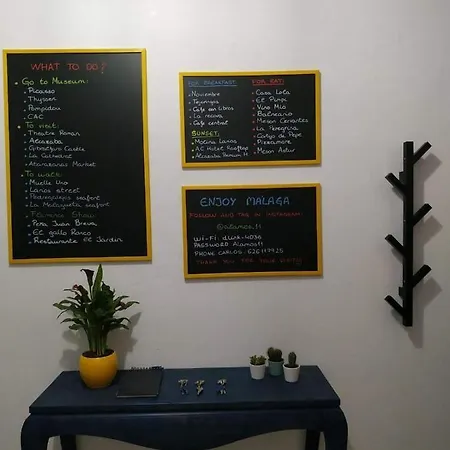 WHAT TO DO!
Go to Museum:
Picasso
Thyssen
Pompidou
CAC
To visit:
Theatre Roman
Alcazaba
Gibralfaro Castle
La Cathedral
Atarazanas Market
To walk:
Muelle Uno
Larios street
Pedregalejo seafort
La Malagueta seafort
Flamenco Show
Peña Juan Breva
EE gallo Ronco
Restaurante EE Jardin
FOR BREAKFAST:
Noviembre
Tejeringos
Cafe con libros
La recova
Cafe central
SUNSET:
Molina Larios
AC Hotel Rooftop
Alcazaba Premium 11
FOR EAT:
Casa Lola
EE Pimpi
Vino Mio
Balneario
Meson Cervantes
La Peregrina
Cortijo de Pepe
Pizzamare
Meson Astur
ENJOY MALAGA
FOLLOW AND TAG IN INSTAGRAM
@alamos_11
Wi-Fi: dlink-4036
PASSWORD Alamos11
PHONE CARLOS: 626117925
THANK YOU FOR YOUR VISIT!